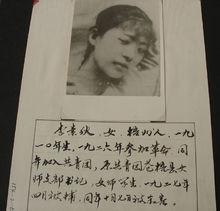 李素秋、女、梧州人、一九
一〇年生,一九二六年参加革命 同
年加入共青团,原共青团苍梧县女
师支部书记,女师学生,一九二七年
四月被捕,同年十月